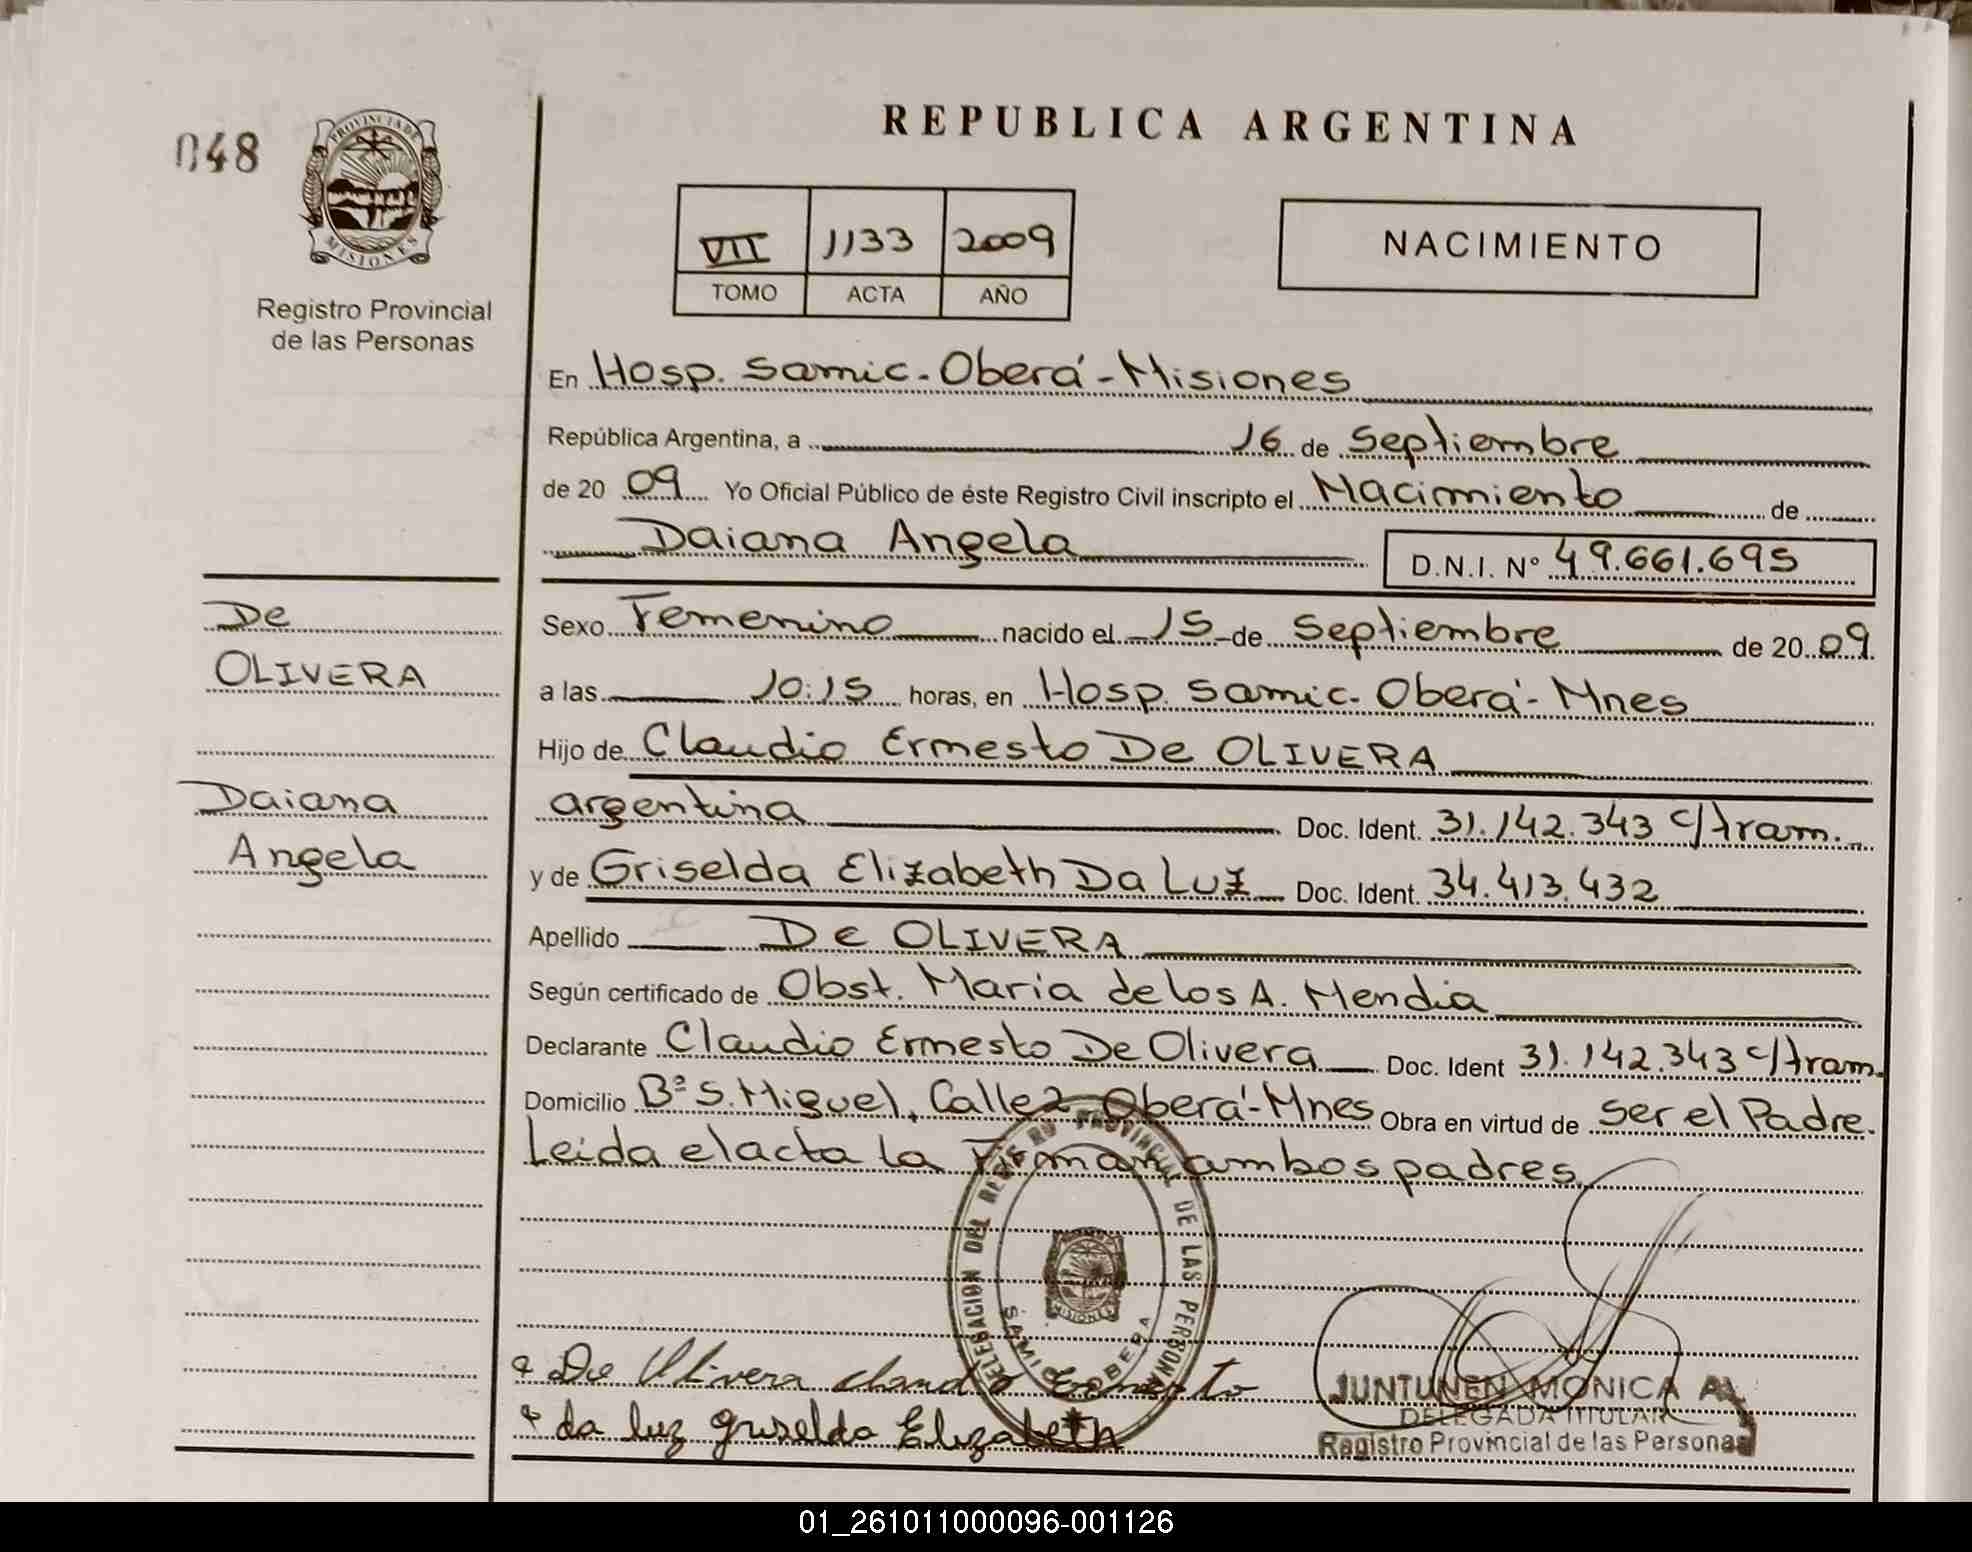 048
PROVINCIA DE
MISIONES
Registro Provincial
de las Personas
REPUBLICA ARGENTINA
VII 1133 2009
TOMO ACTA AÑO
NACIMIENTO
En Hosp. Samic. Oberá - Misiones
República Argentina, a 16 de Septiembre
de 20 09 Yo Oficial Público de éste Registro Civil inscripto el Nacimiento de
Daiana Angela D.N.I. Nº 49.661.695
Sexo Femenino nacido el 15 de Septiembre de 20 09
a las 10:15 horas, en Hosp. Samic. Oberá - Mnes
Hijo de Claudio Ernesto De OLIVERA
argentina Doc. Ident. 31.142.343 c/tram.
y de Griselda Elizabeth Da Luz Doc. Ident. 34.413.432
Apellido De OLIVERA
Según certificado de Obst. María de los A. Mendia
Declarante Claudio Ernesto De Olivera Doc. Ident 31.142.343 c/tram.
Domicilio Bº S. Miguel, Calle 2 Oberá - Mnes Obra en virtud de ser el Padre.
Leida el acta la Firman ambos padres
De
OLIVERA
Daiana
Angela
DELEGACION DEL REG. PROVINCIAL DE LAS PERSONAS
MISIONES
SAMIC OBERA
De Olivera Claudio Ernesto
da luz griselda Elizabeth
JUNTUNEN MONICA A.
DELEGADA TITULAR
Registro Provincial de las Personas
01_261011000096-001126